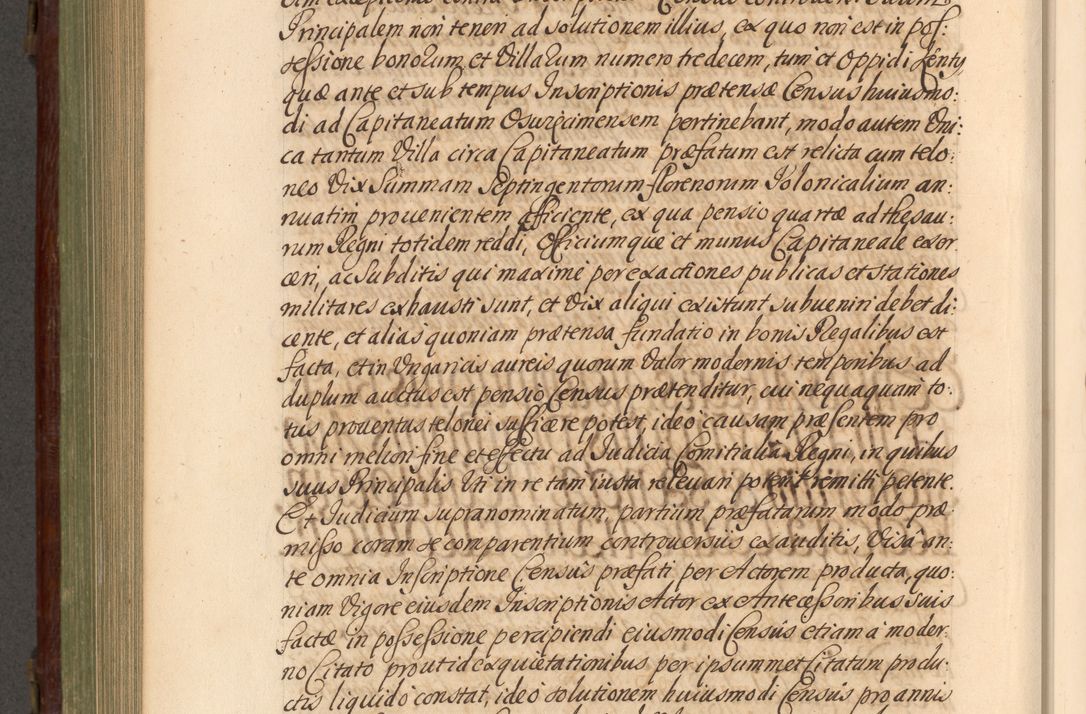 Principalem non teneri ad solutionem illius, ex quo non est in pos:
sessione bonorum et Villarum numero tredecem, tum et Oppidi Lenty,
quæ ante et sub tempus Inscriptionis prætensæ Census huiusmo:
di ad Capitaneatum Osurgimensem pertinebant, modo autem Vni:
ca tantum Villa circa Capitaneatum præfatum est relicta cum telo:
neo Vix Summam septingentorum florenorum Polonicalium an:
nuatim prouenientem efficiente, ex qua pensio quartæ ad thesau:
rum Regni totidem reddi, Officiumque et munus Capitaneale exer:
ceri, ac subditis qui maxime per exactiones publicas et stationes
militares exhausti sunt, et Vix aliqui existunt subueniri debet di:
cente, et alias quoniam prætensa fundatio in bonis Regalibus est
facta, et in Vngaricis aureis quorum Valor modernis temporibus ad
duplum auctus est pensio Census prætenditur, cui nequaquam to:
tus prouentus telonei sufficere potest, ideo causam præsentem pro
omni meliori fine et effectu ad Iudicia Comitialia Regni, in quibus
suus Principalis Vti in re tam iusta releuari poterit remitti petente.
Et Iudicium supranominatum, partium præfatarum modo præ
misso coram se comparentium controuersiis exauditis, Visâ an:
te omnia Inscriptione Census præfati per Actorem producta, quo:
niam Vigore eiusdem Inscriptionis Actor ex Antecessoribus suis
factæ in possessione percipiendi eiusmodi Census etiam à moder:
no Citato prout id ex quietationibus per ipsummet Citatum produ:
ctis liquido constat, ideo solutionem huiusmodi Census pro annis